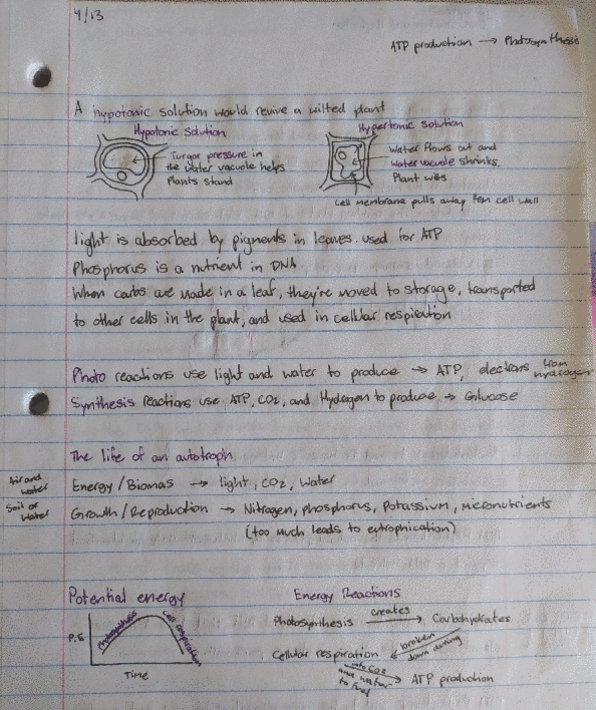 4/13
ATP production → Photosynthesis
A hypotonic solution would revive a wilted plant
Hypotonic solution
Turgor pressure in
the water vacuole helps
Plants stand
Hypertonic solution
Water flows out and
Water vacuole shrinks.
Plant wilts
Cell membrane pulls away from cell wall
Light is absorbed by pigments in leaves. used for ATP
Phosphorus is a nutrient in DNA
When carbs are made in a leaf, they're moved to storage, transported
to other cells in the plant, and used in cellular respiration
Photo reactions use light and water to produce → ATP, electrons from hydrogen
Synthesis reactions use ATP, CO2, and Hydrogen to produce → Glucose
The life of an autotroph
Air and
water
Energy/Biomas → light, CO2, Water
Soil or
Water
Growth/Reproduction → Nitrogen, phosphorus, Potassium, micronutrients
(too much leads to eutrophication)
Potential energy
P.E
Photosynthesis
Cell respiration
Time
Energy Reactions
Photosynthesis creates → Carbohydrates
broken
down during
Cellular respiration
into CO2
and water
to fuel
→ ATP production